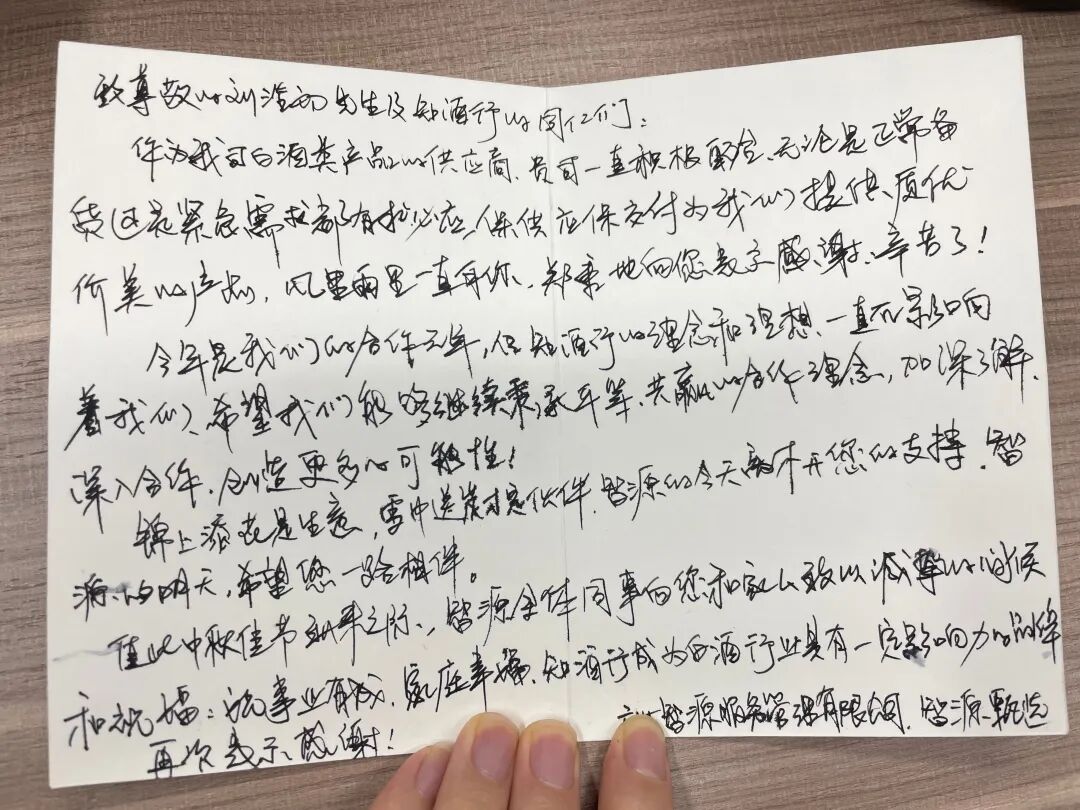 致尊敬的刘滢初先生及知酒行的同仁们：
作为我司白酒类产品的供应商、贵司一直积极配合、无论是正常备
货还是紧急需求都有求必应，保供应保交付为我们提供质优
价美的产品，风里雨里一直有你、郑重地向您表示感谢、辛苦了！
今年是我们的合作元年，但知酒行的理念和理想、一直在影响
着我们、希望我们能够继续秉承平等、共赢的合作理念，加深了解、
深入合作、创造更多的可能性！
锦上添花是生意，雪中送炭才是伙伴、智源的今天离不开您的支持、智
源的明天，希望您一路相伴。
值此中秋佳节到来之际、智源全体同事向您和家人致以诚挚的问候
和祝福：祝事业有成、家庭幸福、知酒行成为白酒行业具有一定影响力的
再次表示感谢！
智源服务管理有限公司、智源甄选